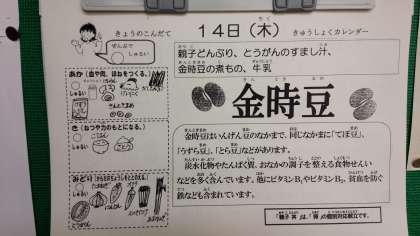 きょうのこんだて
14日(木)
きゅうしょくカレンダー
ぜんぶで
しゅるい
親子どんぶり、とうがんのすまし汁、
金時豆の煮もの、牛乳
あか(血や肉、ほねをつくる。)
しゅるい
き(ねつや力のもとになる。)
しゅるい
みどり
しゅるい
金時豆
金時豆はいんげん豆のなかまで、同じなかまに「てぼ豆」、
「うずら豆」、「とら豆」などがあります。
炭水化物やたんぱく質、おなかの調子を整える食物せんい
などを多く含んでいます。他にビタミンB₁やビタミンB₂、貧血を防ぐ
鉄なども含まれています。